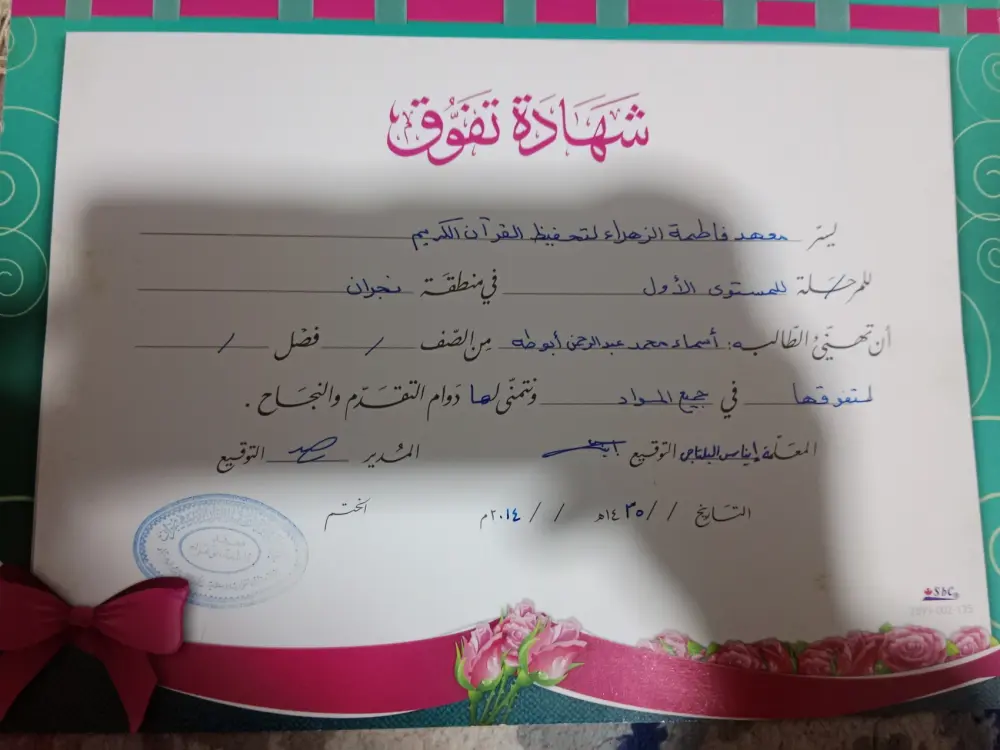 شَهَادَة تَفَوُّق
يسرّ معهد فاطمة الزهراء لتحفيظ القرآن الكريم
للمرحلة للمستوى الأول في منطقة نجران
أن تهنّئ الطّالبه: أسماء محمد عبدالرحمن أبوطه من الصّف / فصْل /
لتفوقها في جميع المواد ونتمنّى لها دَوام التقدّم والنجَاح .
المعَلّمة إيناس البلتاجي التوقيع المُدير التوقيع
التاريخ / / ١٤٣٥هـ / / ٢٠١٤م الختم
SbC